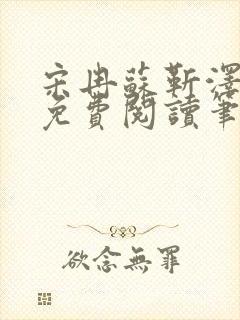 宋冉蘇靳澤
免費閱讀筆
欲念無罪